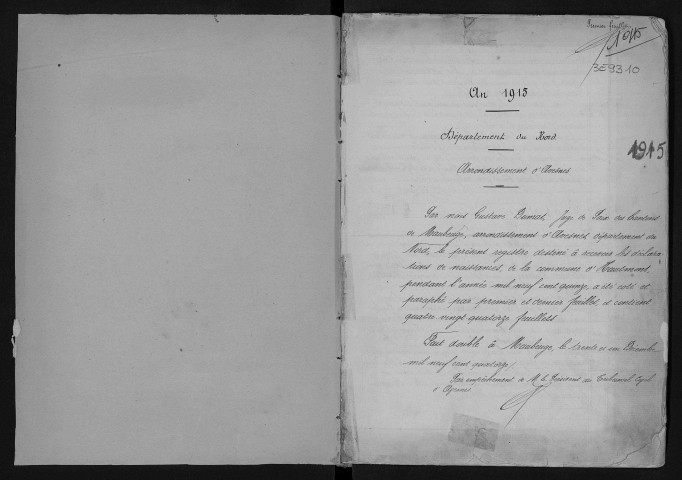 Premier feuillet
1915
3E9310
An 1915
Département du Nord
1915
Arrondissement d'Avesnes
Par nous Gustave Dumat, Juge de Paix des Cantons
de Maubeuge, arrondissement d'Avesnes, département du
Nord, le présent registre destiné à recevoir les déclara
tions de naissances, de la commune d'Hautmont,
pendant l'année mil neuf cent quinze, a été coté et
paraphé par premier et dernier feuillet, et contient
quatre vingt quatorze feuillets
Fait double à Maubeuge, le trente et un Décembre
mil neuf cent quatorze,
Par empêchement de M. le Président du Tribunal Civil
d'Avesnes